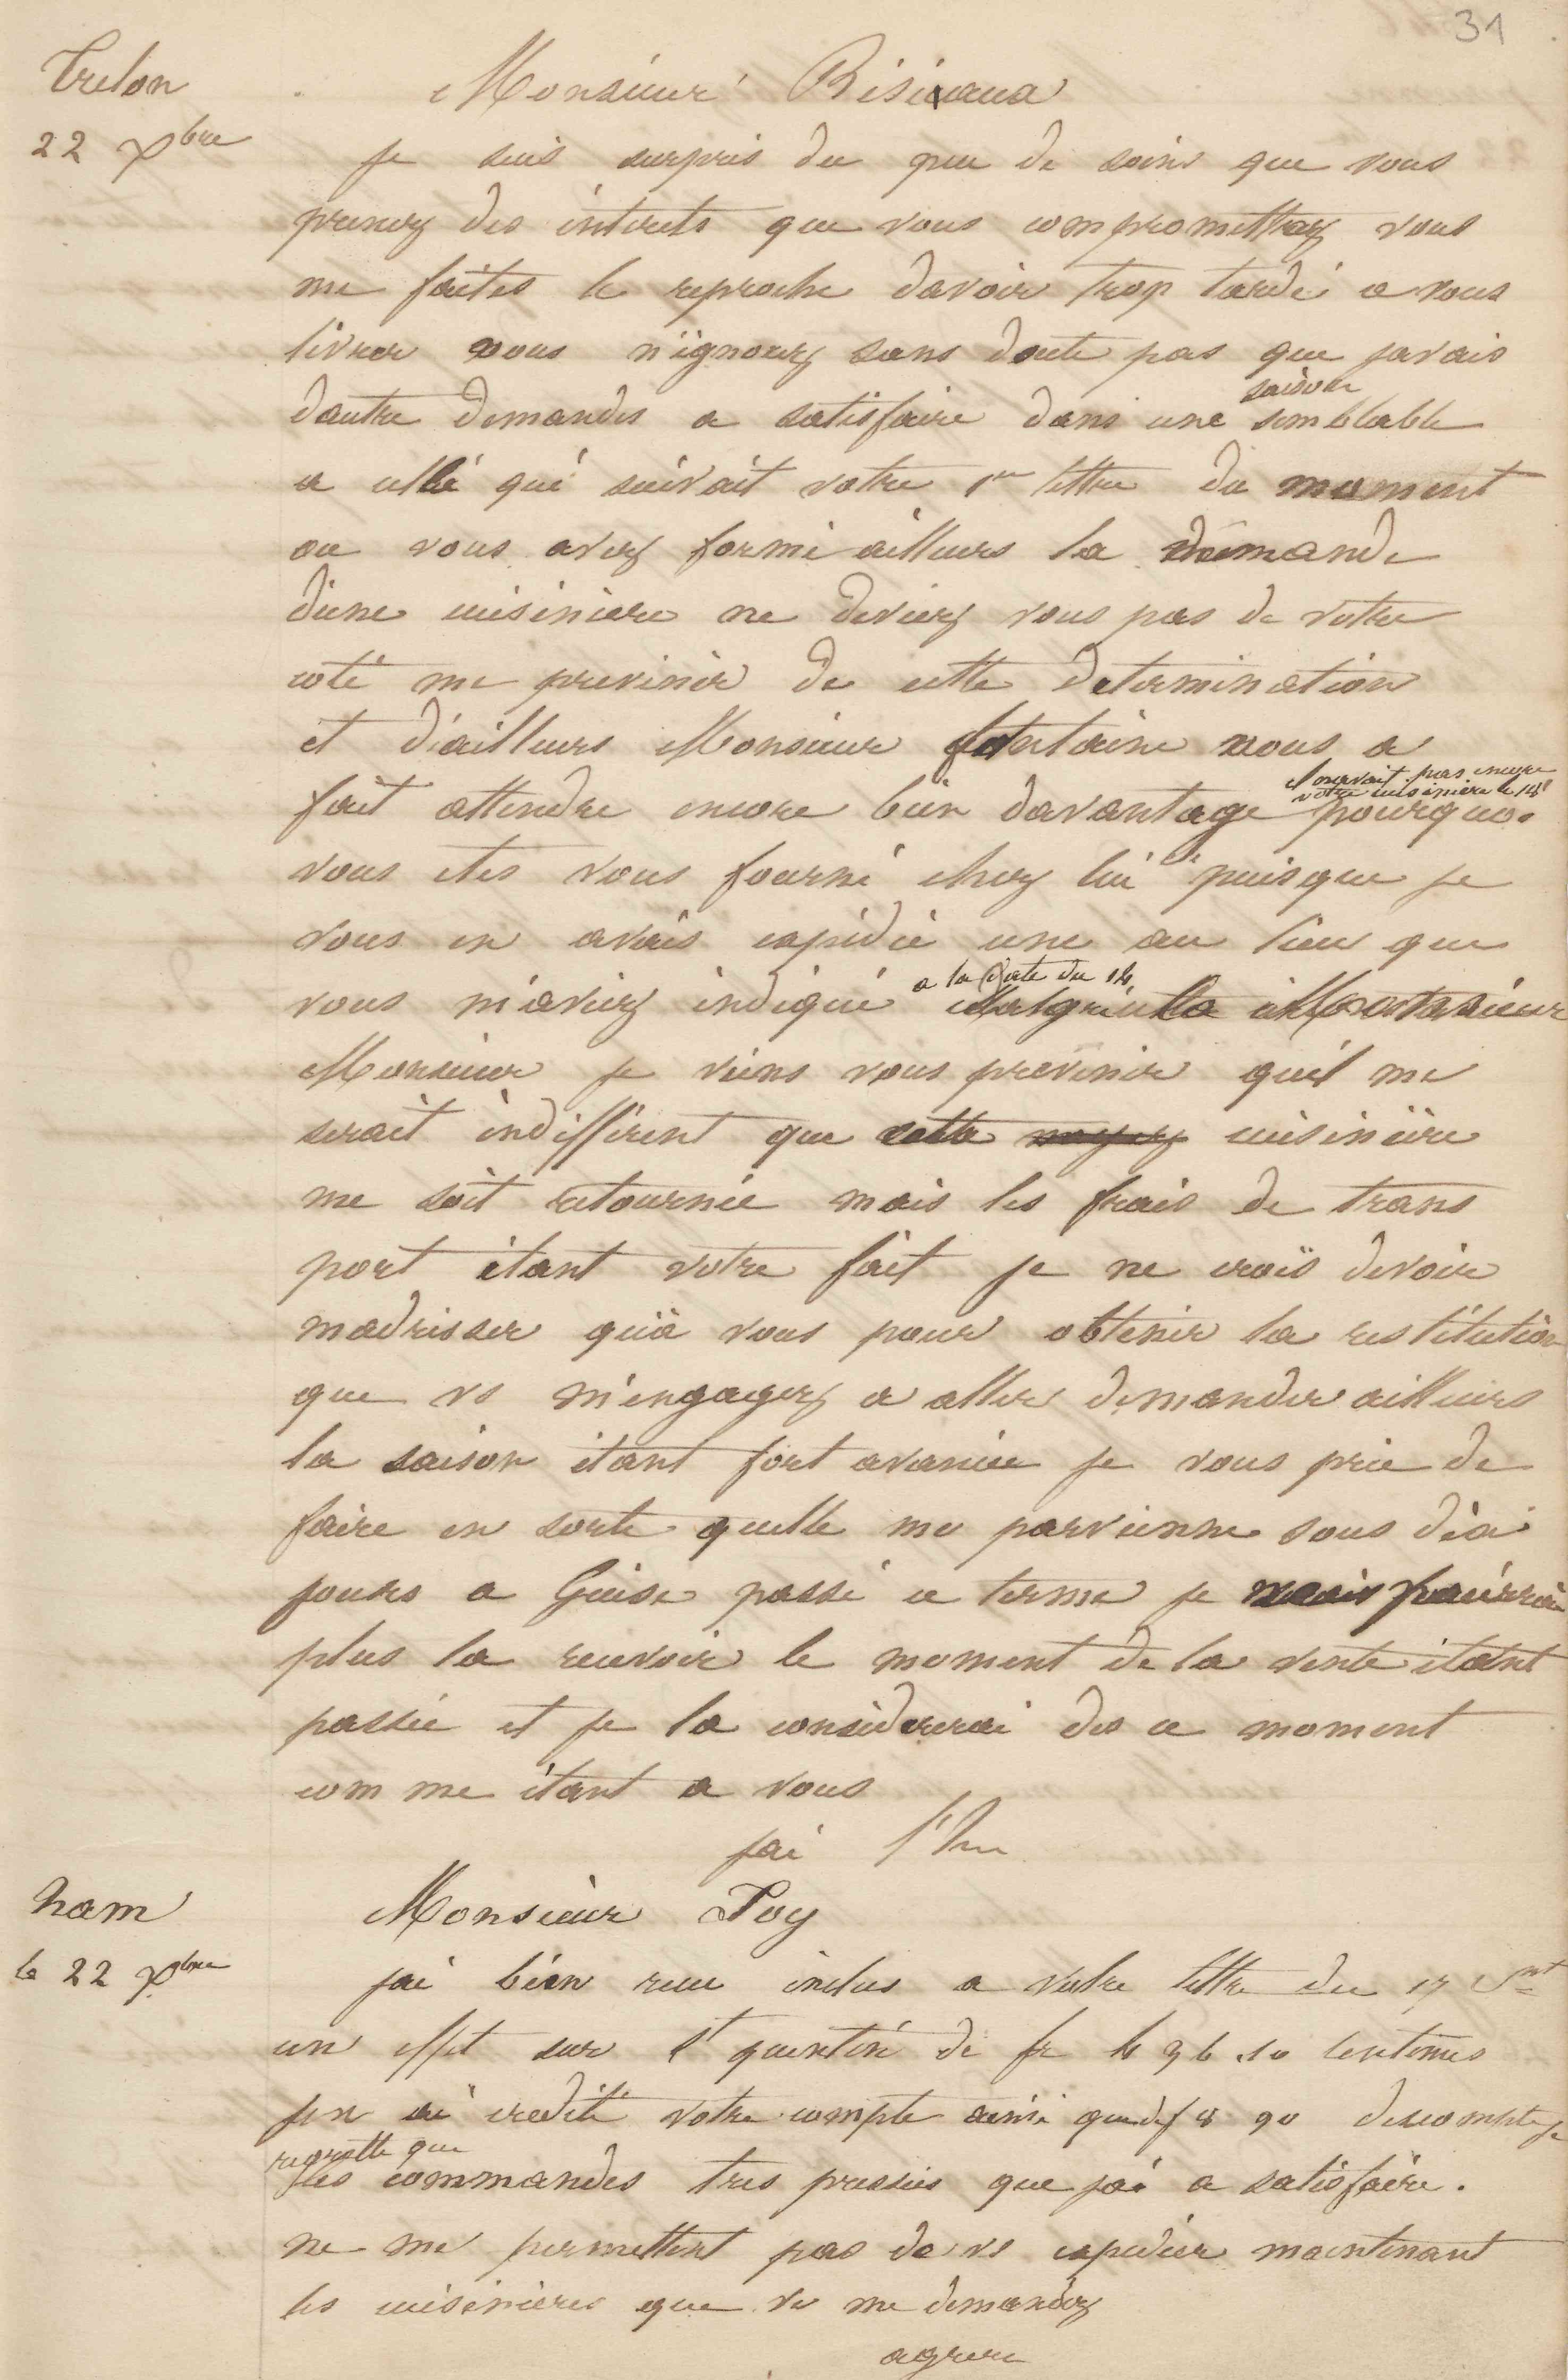 31
Trelon
22 Xbre
Monsieur
je suis surpris du peu de soins que vous
prenez des interets que vous compromettez vous
me faites le reproche davoir trop tardé a vous
livrer vous n'ignorez sans doute pas que javais
saison
dautre demandes a satisfaire dans une semblable
a celle qui suivait votre 1re lettre du moment
ou vous avez formé ailleurs la demande
d'une cuisiniere ne deviez vous pas de votre
coté me prevenir de cette determination
et d'ailleurs Monsieur fontaine vous a
il n'avait pas encore
votre cuisiniere le 18
fait attendre encore bien davantage pourquoi
vous etes vous fourni chez lui puisque je
vous en avais expédié une au lieu que
a la date du 14
vous m'aviez indiqué Malgré cela Monsieur
Monsieur je viens vous prevenir quil me
serait indifférent que cette cuisinière
me soit retournée mais les frais de trans
port étant votre fait je ne crois devoir
madresser qu'a vous pour obtenir la restitution
que vs m'engagez a aller demander ailleurs
la saison étant fort avancée je vous prie de
faire en sorte quelle me parvienne sous dix
jours a Guise passé ce terme je pourrai
plus la recevoir le moment de la vente étant
passée et je la considererai des ce moment
com me étant a vous
jai l'hr
ham
le 22 Xbre
Monsieur Poy
jai bien recu inclus a votre lettre du 17 Ct
un effet sur St quentin de fr 96.10 centimes
jen ai credité votre compte ainsi que de f 8 90 descompte je
regrette que
les commandes tres pressées que jai a satisfaire.
ne me permettent pas de vs expedier maintenant
les cuisinieres que vs me demandez
agreer